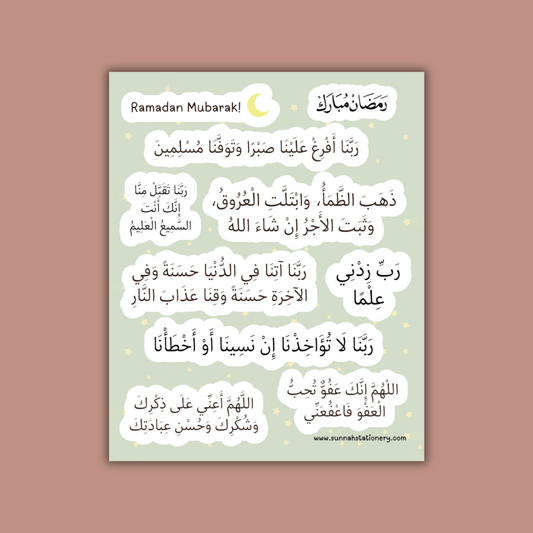 Ramadan Mubarak!
رَمَضَانْ مُبَارَكْ
رَبَّنَا أَفْرِغْ عَلَيْنَا صَبْرًا وَتَوَفَّنَا مُسْلِمِينَ
ذَهَبَ الظَّمَأُ، وَابْتَلَّتِ الْعُرُوقُ،
وَثَبَتَ الأَجْرُ إِنْ شَاءَ اللهُ
رَبَّنَا تَقَبَّلْ مِنَّا
إِنَّكَ أَنْتَ
السَّمِيعُ الْعَلِيمُ
رَبَّنَا آتِنَا فِي الدُّنْيَا حَسَنَةً وَفِي
الآخِرَةِ حَسَنَةً وَقِنَا عَذَابَ النَّارِ
رَبِّ زِدْنِي
عِلْمًا
رَبَّنَا لَا تُؤَاخِذْنَا إِنْ نَسِينَا أَوْ أَخْطَأْنَا
اللهُمَّ إِنَّكَ عَفُوٌّ تُحِبُّ
الْعَفْوَ فَاعْفُ عَنِّي
اللَّهُمَّ أَعِنِّي عَلَى ذِكْرِكَ
وَشُكْرِكَ وَحُسْنِ عِبَادَتِكَ
www.sunnahstationery.com